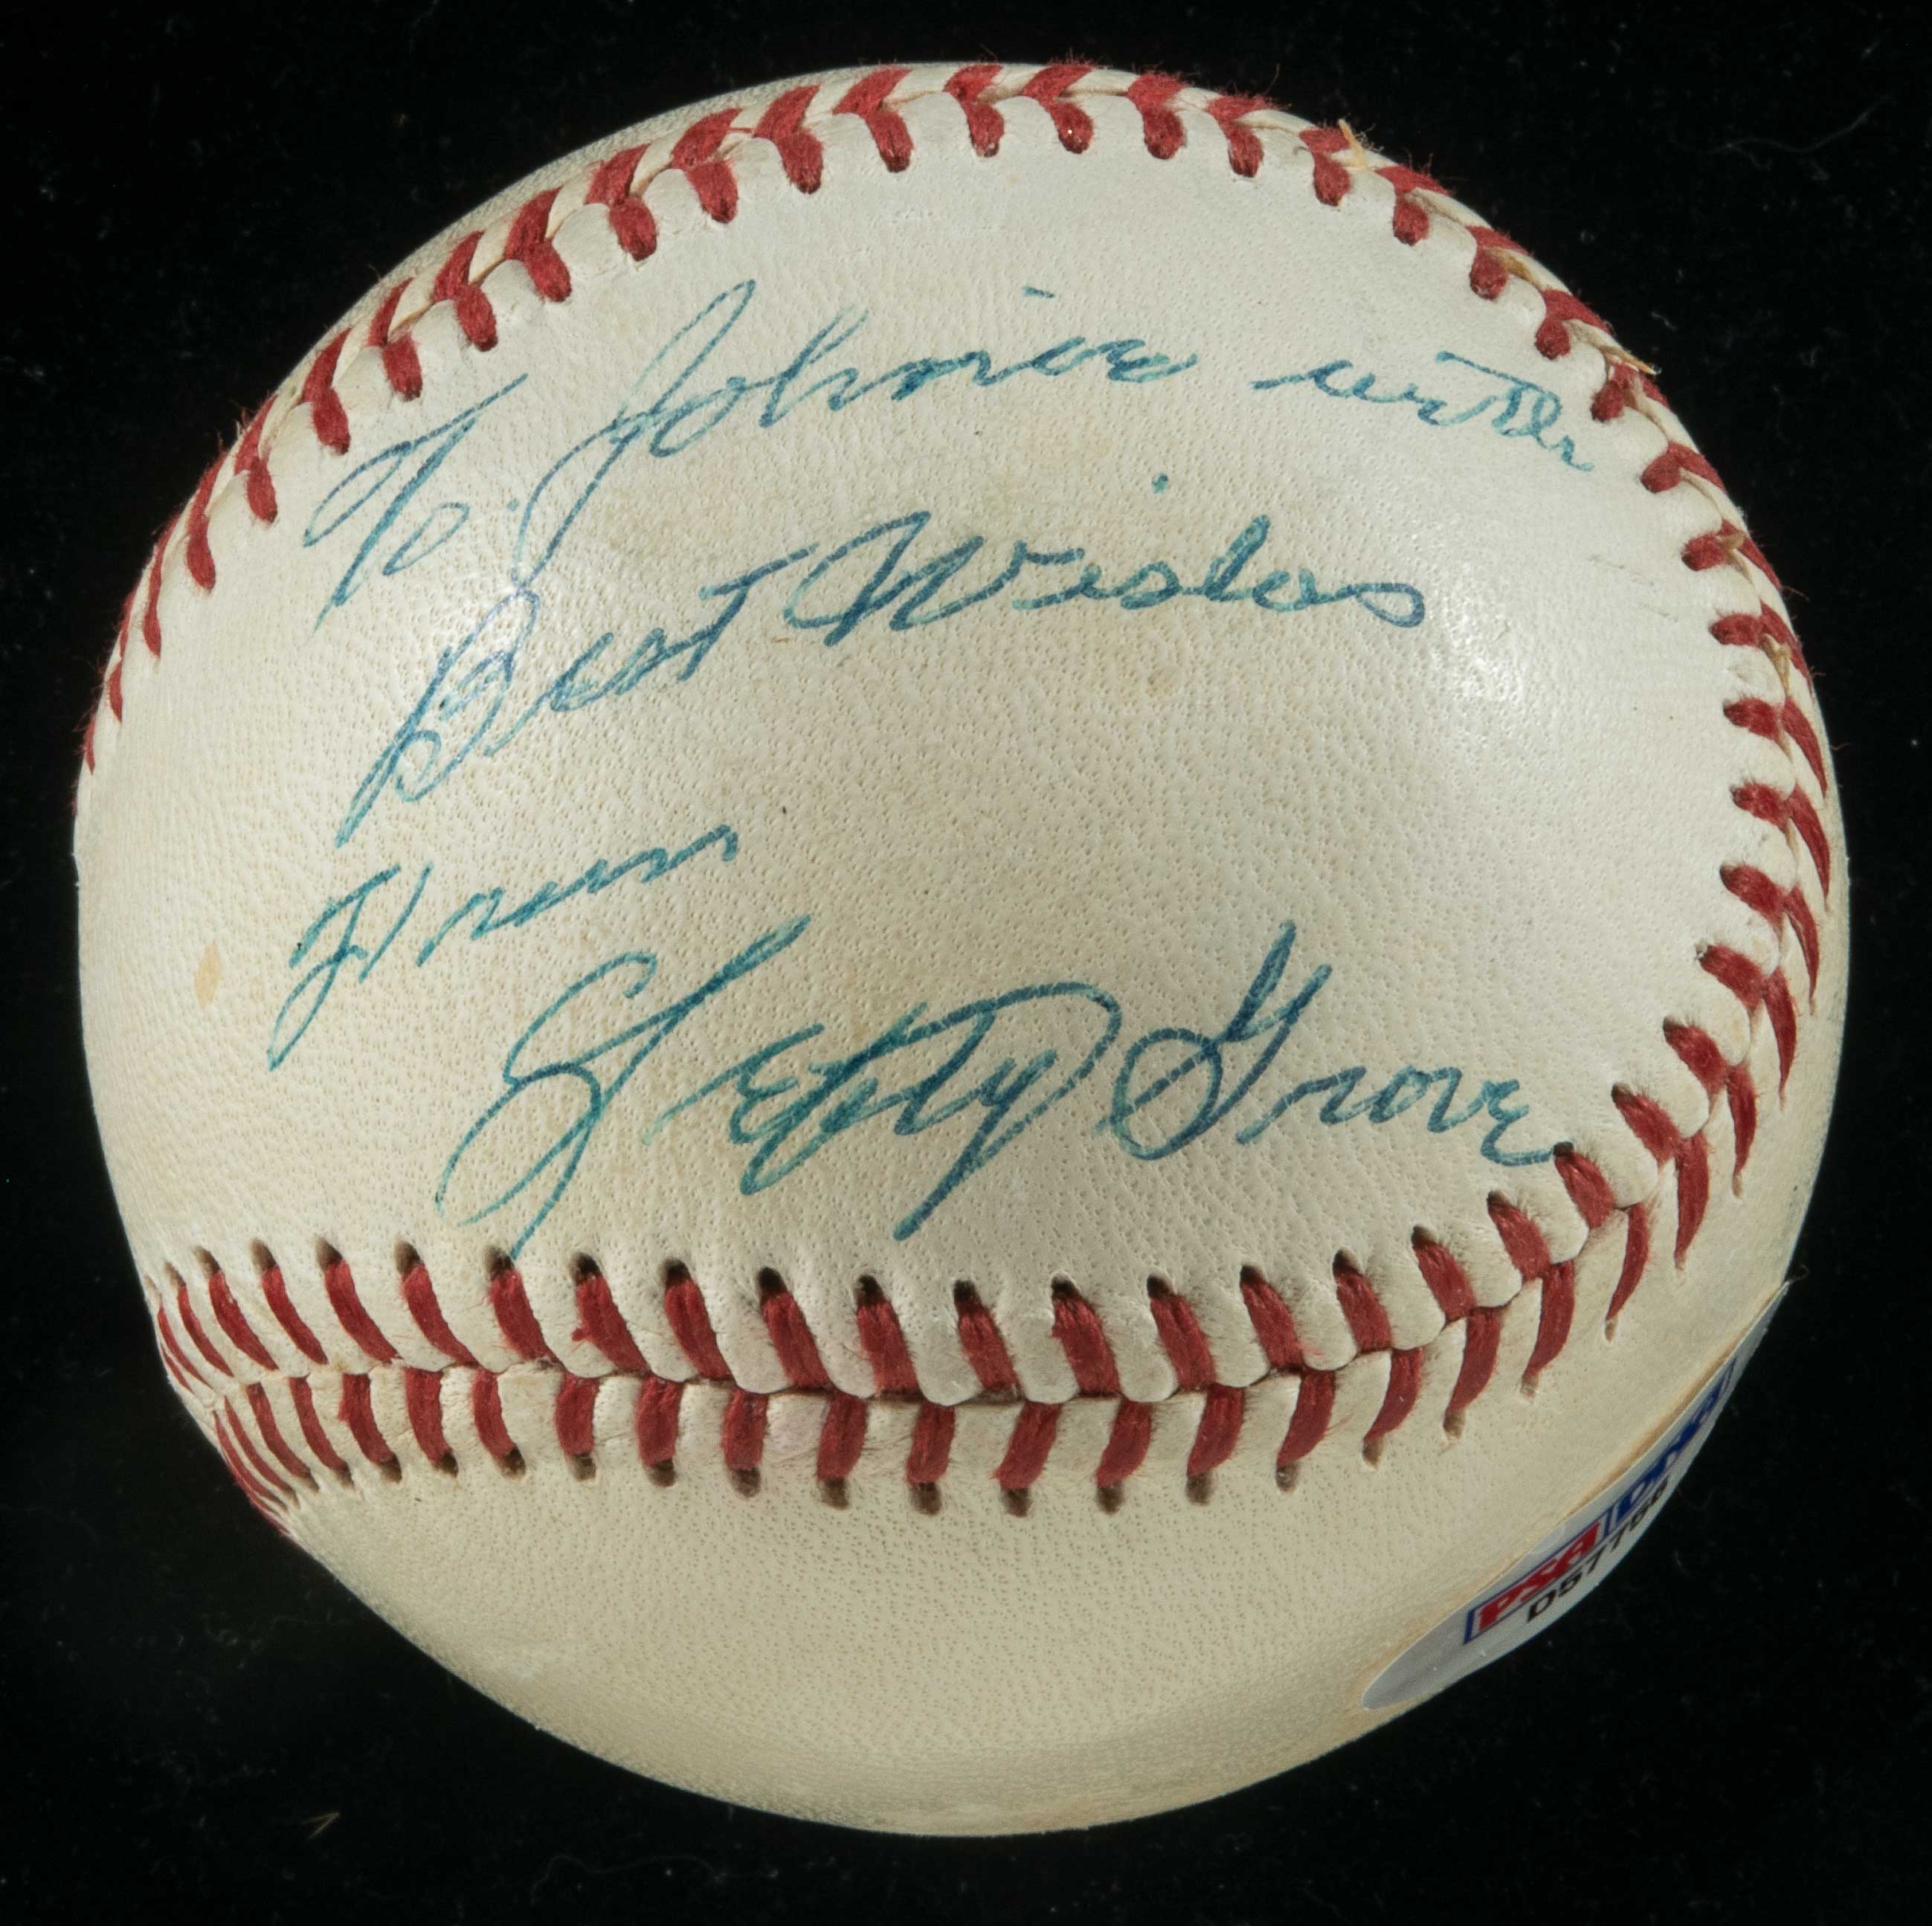 To Johnie with
Best Wishes
From
Lefty Grove
PSA DNA